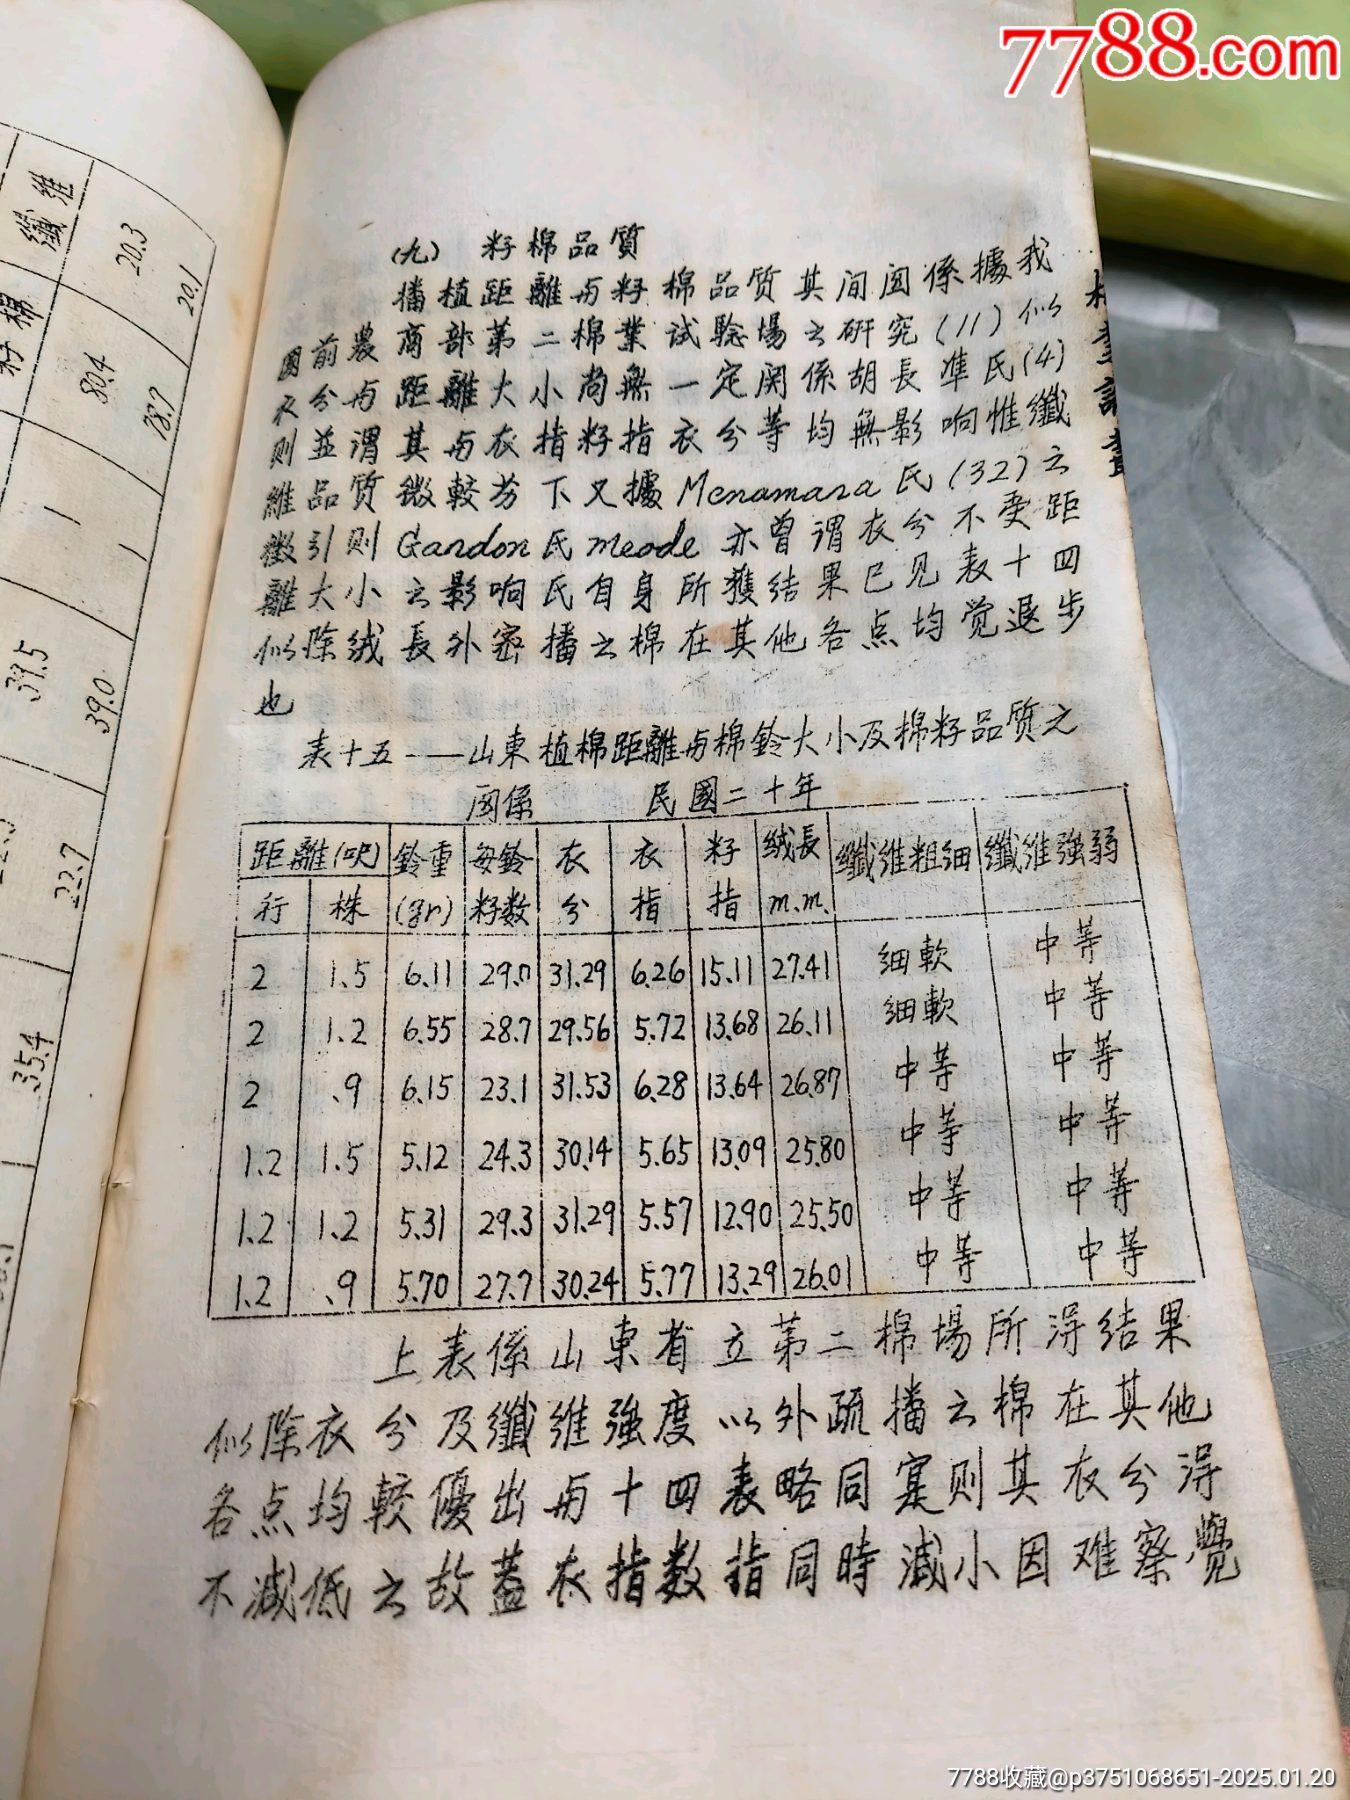 7788.com
纖維
20.3
20.1
籽棉
80.4
78.7
39.5
39.0
22.7
35.4
(九) 籽棉品質
播植距離与籽棉品質其间関係據我
國前農商部第二棉業試驗場之研究(11)似
衣分与距離大小尚無一定関係胡長準氏(4)
则並谓其与衣指籽指衣分等均無影响惟纖
維品质微較劣下又據Mcnamara氏(32)之
徵引则Gandon氏meade亦曾谓衣分不受距
離大小之影响氏自身所獲結果已见表十四
似除绒長外密播之棉在其他各点均觉退步
也
表十五——山東植棉距離与棉鈴大小及棉籽品质之
関係 民國二十年
距離(呎) 鈴重 每鈴 衣 衣 籽 绒長 纖维粗细 纖维強弱
行 株 (gr) 籽数 分 指 指 m.m.
2 1.5 6.11 29.0 31.29 6.26 15.11 27.41 细軟 中等
2 1.2 6.55 28.7 29.56 5.72 13.68 26.11 细軟 中等
2 .9 6.15 23.1 31.53 6.28 13.64 26.87 中等 中等
1.2 1.5 5.12 24.3 30.14 5.65 13.09 25.80 中等 中等
1.2 1.2 5.31 29.3 31.29 5.57 12.90 25.50 中等 中等
1.2 .9 5.70 27.7 30.24 5.77 13.29 26.01 中等 中等
上表係山東省立第二棉場所得结果
似除衣分及纖維強度以外疏播之棉在其他
各点均較優出与十四表略同寔则其衣分得
不減低之故蓋衣指数指同時減小因难察觉
7788收藏@p3751068651-2025.01.20